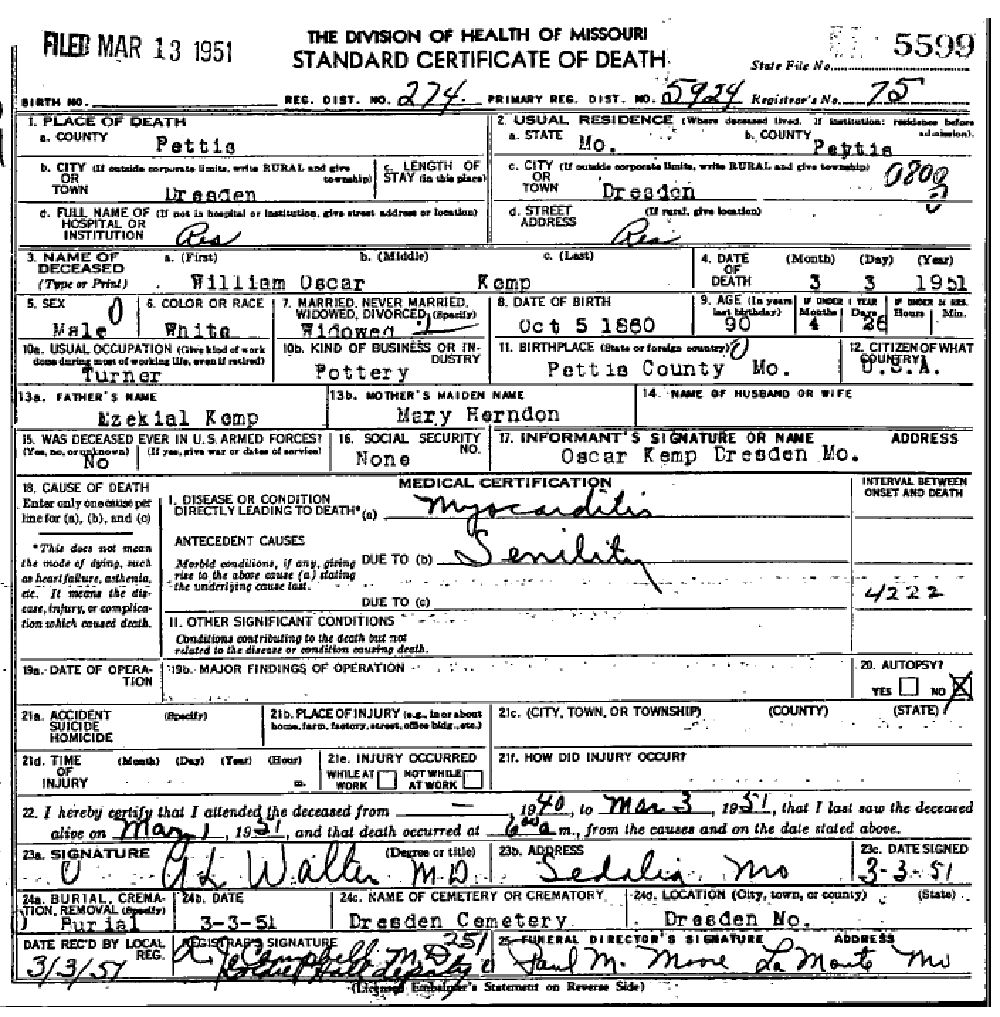 FILED MAR 13 1951
THE DIVISION OF HEALTH OF MISSOURI
STANDARD CERTIFICATE OF DEATH
State File No. 5599
BIRTH NO. REG. DIST. NO. 274. PRIMARY REG. DIST. NO. 5924 Registrar's No. 75
1. PLACE OF DEATH
a. COUNTY Pettis
2. USUAL RESIDENCE (Where deceased lived. If institution: residence before admission).
a. STATE Mo. b. COUNTY Pettis
b. CITY (If outside corporate limits, write RURAL and give township) OR TOWN Dresden
c. LENGTH OF STAY (in this place)
c. CITY (If outside corporate limits, write RURAL and give township) OR TOWN Dresden
d. FULL NAME OF (If not in hospital or institution, give street address or location) HOSPITAL OR INSTITUTION Res
d. STREET ADDRESS (If rural, give location) Res
3. NAME OF DECEASED (Type or Print) a. (First) b. (Middle) c. (Last)
William Oscar Kemp
4. DATE OF DEATH (Month) (Day) (Year)
3 3 1951
5. SEX Male
6. COLOR OR RACE White
7. MARRIED, NEVER MARRIED, WIDOWED, DIVORCED (Specify) Widowed
8. DATE OF BIRTH Oct 5 1860
9. AGE (In years last birthday) 90
IF UNDER 1 YEAR Months 4 Days 26
IF UNDER 24 HRS. Hours Min.
10a. USUAL OCCUPATION (Give kind of work done during most of working life, even if retired) Turner
10b. KIND OF BUSINESS OR INDUSTRY Pottery
11. BIRTHPLACE (State or foreign country) Pettis County Mo.
12. CITIZEN OF WHAT COUNTRY? U.S.A.
13a. FATHER'S NAME Ezekial Kemp
13b. MOTHER'S MAIDEN NAME Mary Herndon
14. NAME OF HUSBAND OR WIFE
15. WAS DECEASED EVER IN U.S. ARMED FORCES? (Yes, no, or unknown) (If yes, give war or dates of service) No
16. SOCIAL SECURITY NO. None
17. INFORMANT'S SIGNATURE OR NAME ADDRESS
Oscar Kemp Dresden Mo.
18. CAUSE OF DEATH
Enter only one cause per line for (a), (b), and (c)
*This does not mean the mode of dying, such as heart failure, asthenia, etc. It means the disease, injury, or complication which caused death.
MEDICAL CERTIFICATION
INTERVAL BETWEEN ONSET AND DEATH
I. DISEASE OR CONDITION DIRECTLY LEADING TO DEATH* (a) Myocarditis
ANTECEDENT CAUSES
Morbid conditions, if any, giving rise to the above cause (a) stating the underlying cause last.
DUE TO (b) Senility
DUE TO (c)
4222
II. OTHER SIGNIFICANT CONDITIONS
Conditions contributing to the death but not related to the disease or condition causing death.
19a. DATE OF OPERATION
19b. MAJOR FINDINGS OF OPERATION
20. AUTOPSY? YES NO X
21a. ACCIDENT SUICIDE HOMICIDE (Specify)
21b. PLACE OF INJURY (e.g., in or about home, farm, factory, street, office bldg., etc.)
21c. (CITY, TOWN, OR TOWNSHIP) (COUNTY) (STATE)
21d. TIME OF INJURY (Month) (Day) (Year) (Hour) m.
21e. INJURY OCCURRED WHILE AT WORK NOT WHILE AT WORK
21f. HOW DID INJURY OCCUR?
22. I hereby certify that I attended the deceased from — , 1940, to Mar 3, 1951, that I last saw the deceased
alive on Mar 1, 1951, and that death occurred at 6 00 a m., from the causes and on the date stated above.
23a. SIGNATURE (Degree or title) A L Walter M.D.
23b. ADDRESS Sedalia, Mo
23c. DATE SIGNED 3-3-51
24a. BURIAL, CREMATION, REMOVAL (Specify) Burial
24b. DATE 3-3-51
24c. NAME OF CEMETERY OR CREMATORY Dresden Cemetery
24d. LOCATION (City, town, or county) (State) Dresden Mo.
DATE REC'D BY LOCAL REG. 3/3/51
REGISTRAR'S SIGNATURE Campbell M.D. 251 deputy
25. FUNERAL DIRECTOR'S SIGNATURE ADDRESS
Paul M. Moore La Monte Mo
(Licensed Embalmer's Statement on Reverse Side)